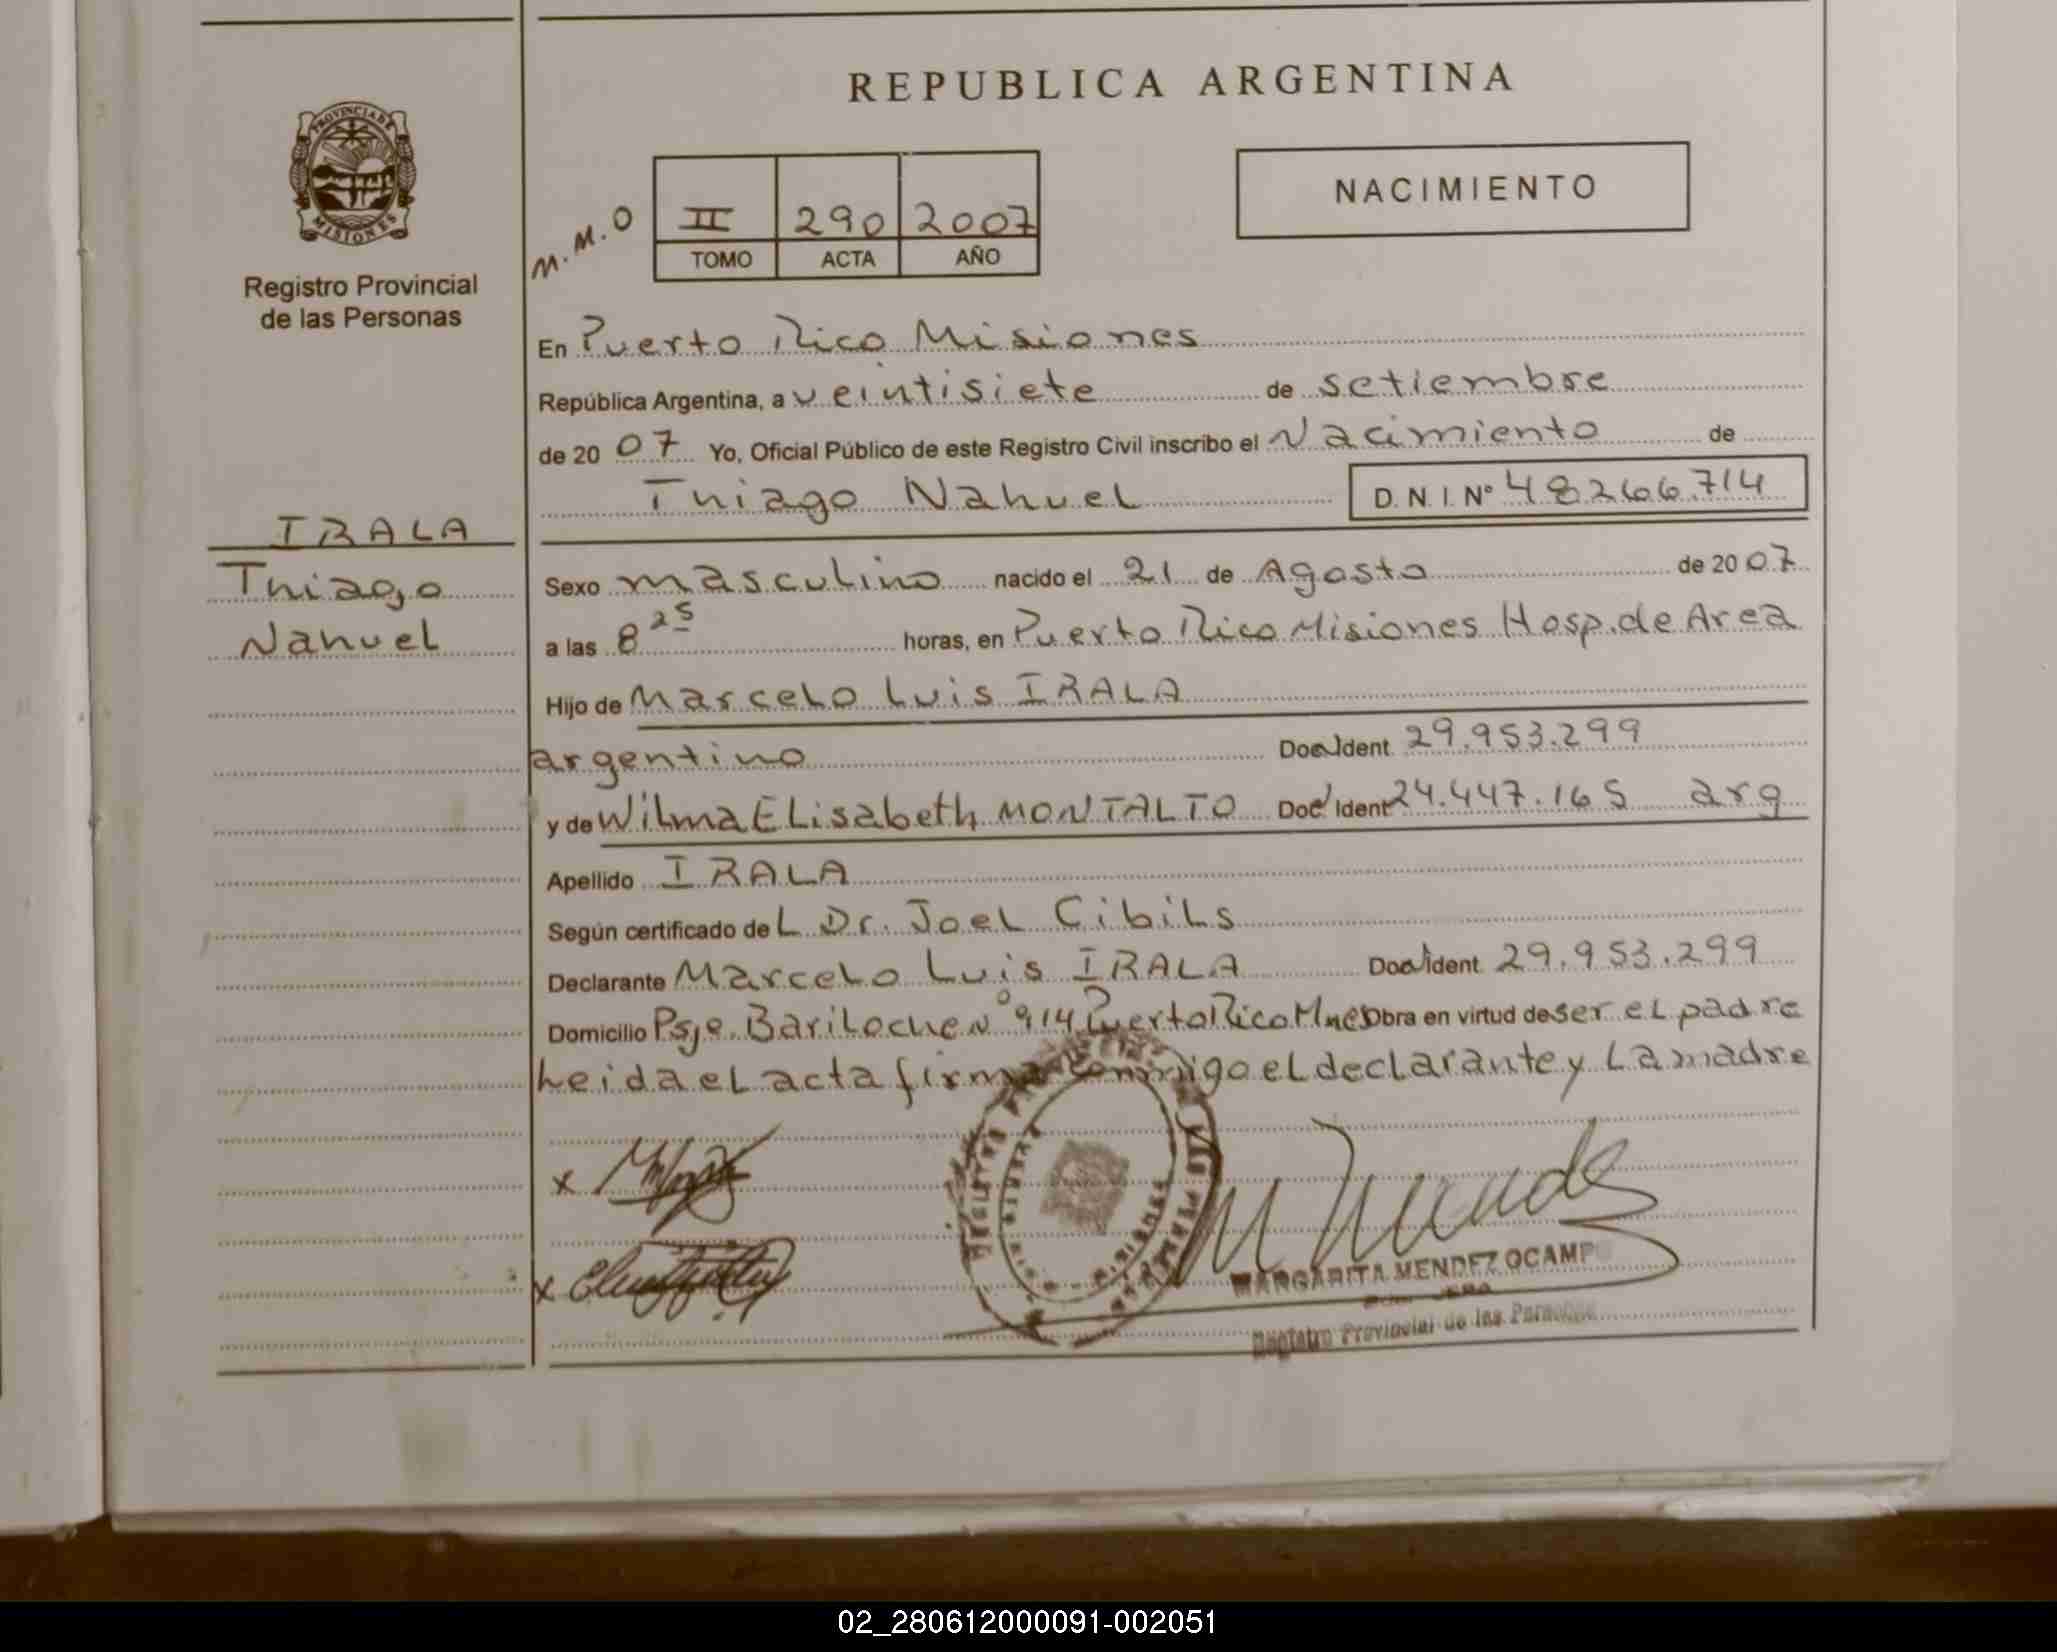 REPUBLICA ARGENTINA
PROVINCIA DE
MISIONES
Registro Provincial
de las Personas
NACIMIENTO
M.M.O
II 290 2007
TOMO ACTA AÑO
En Puerto Rico Misiones
República Argentina, a veintisiete de setiembre
de 20 07 Yo, Oficial Público de este Registro Civil inscribo el Nacimiento de
Thiago Nahuel D.N.I. Nº 48266.714
IRALA
Thiago
Nahuel
Sexo masculino nacido el 21 de Agosto de 20 07
a las 8 25 horas, en Puerto Rico Misiones Hosp. de Area
Hijo de Marcelo Luis IRALA
argentino Doc. Ident. 29.953.299
y de Wilma Elisabeth MONTALTO Doc. Ident 24.447.165 arg
Apellido IRALA
Según certificado de L Dr. Joel Cibils
Declarante Marcelo Luis IRALA Doc. Ident. 29.953.299
Domicilio Psje. Bariloche Nº 914 Puerto Rico Mnes Obra en virtud de ser el padre
Leida el acta firma conmigo el declarante y La madre
x
x
MARGARITA MENDEZ OCAMPO
Registro Provincial de las Personas
02_280612000091-002051